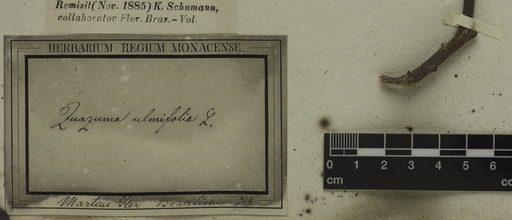 Remisit (Nov. 1885) K. Schumann,
collaborator Flor. Bras.-Vol.
HERBARIUM REGIUM MONACENSE.
Guazuma ulmifolia L.
Martius Iter Brasiliense
0 1 2 3 4 5 6
cm